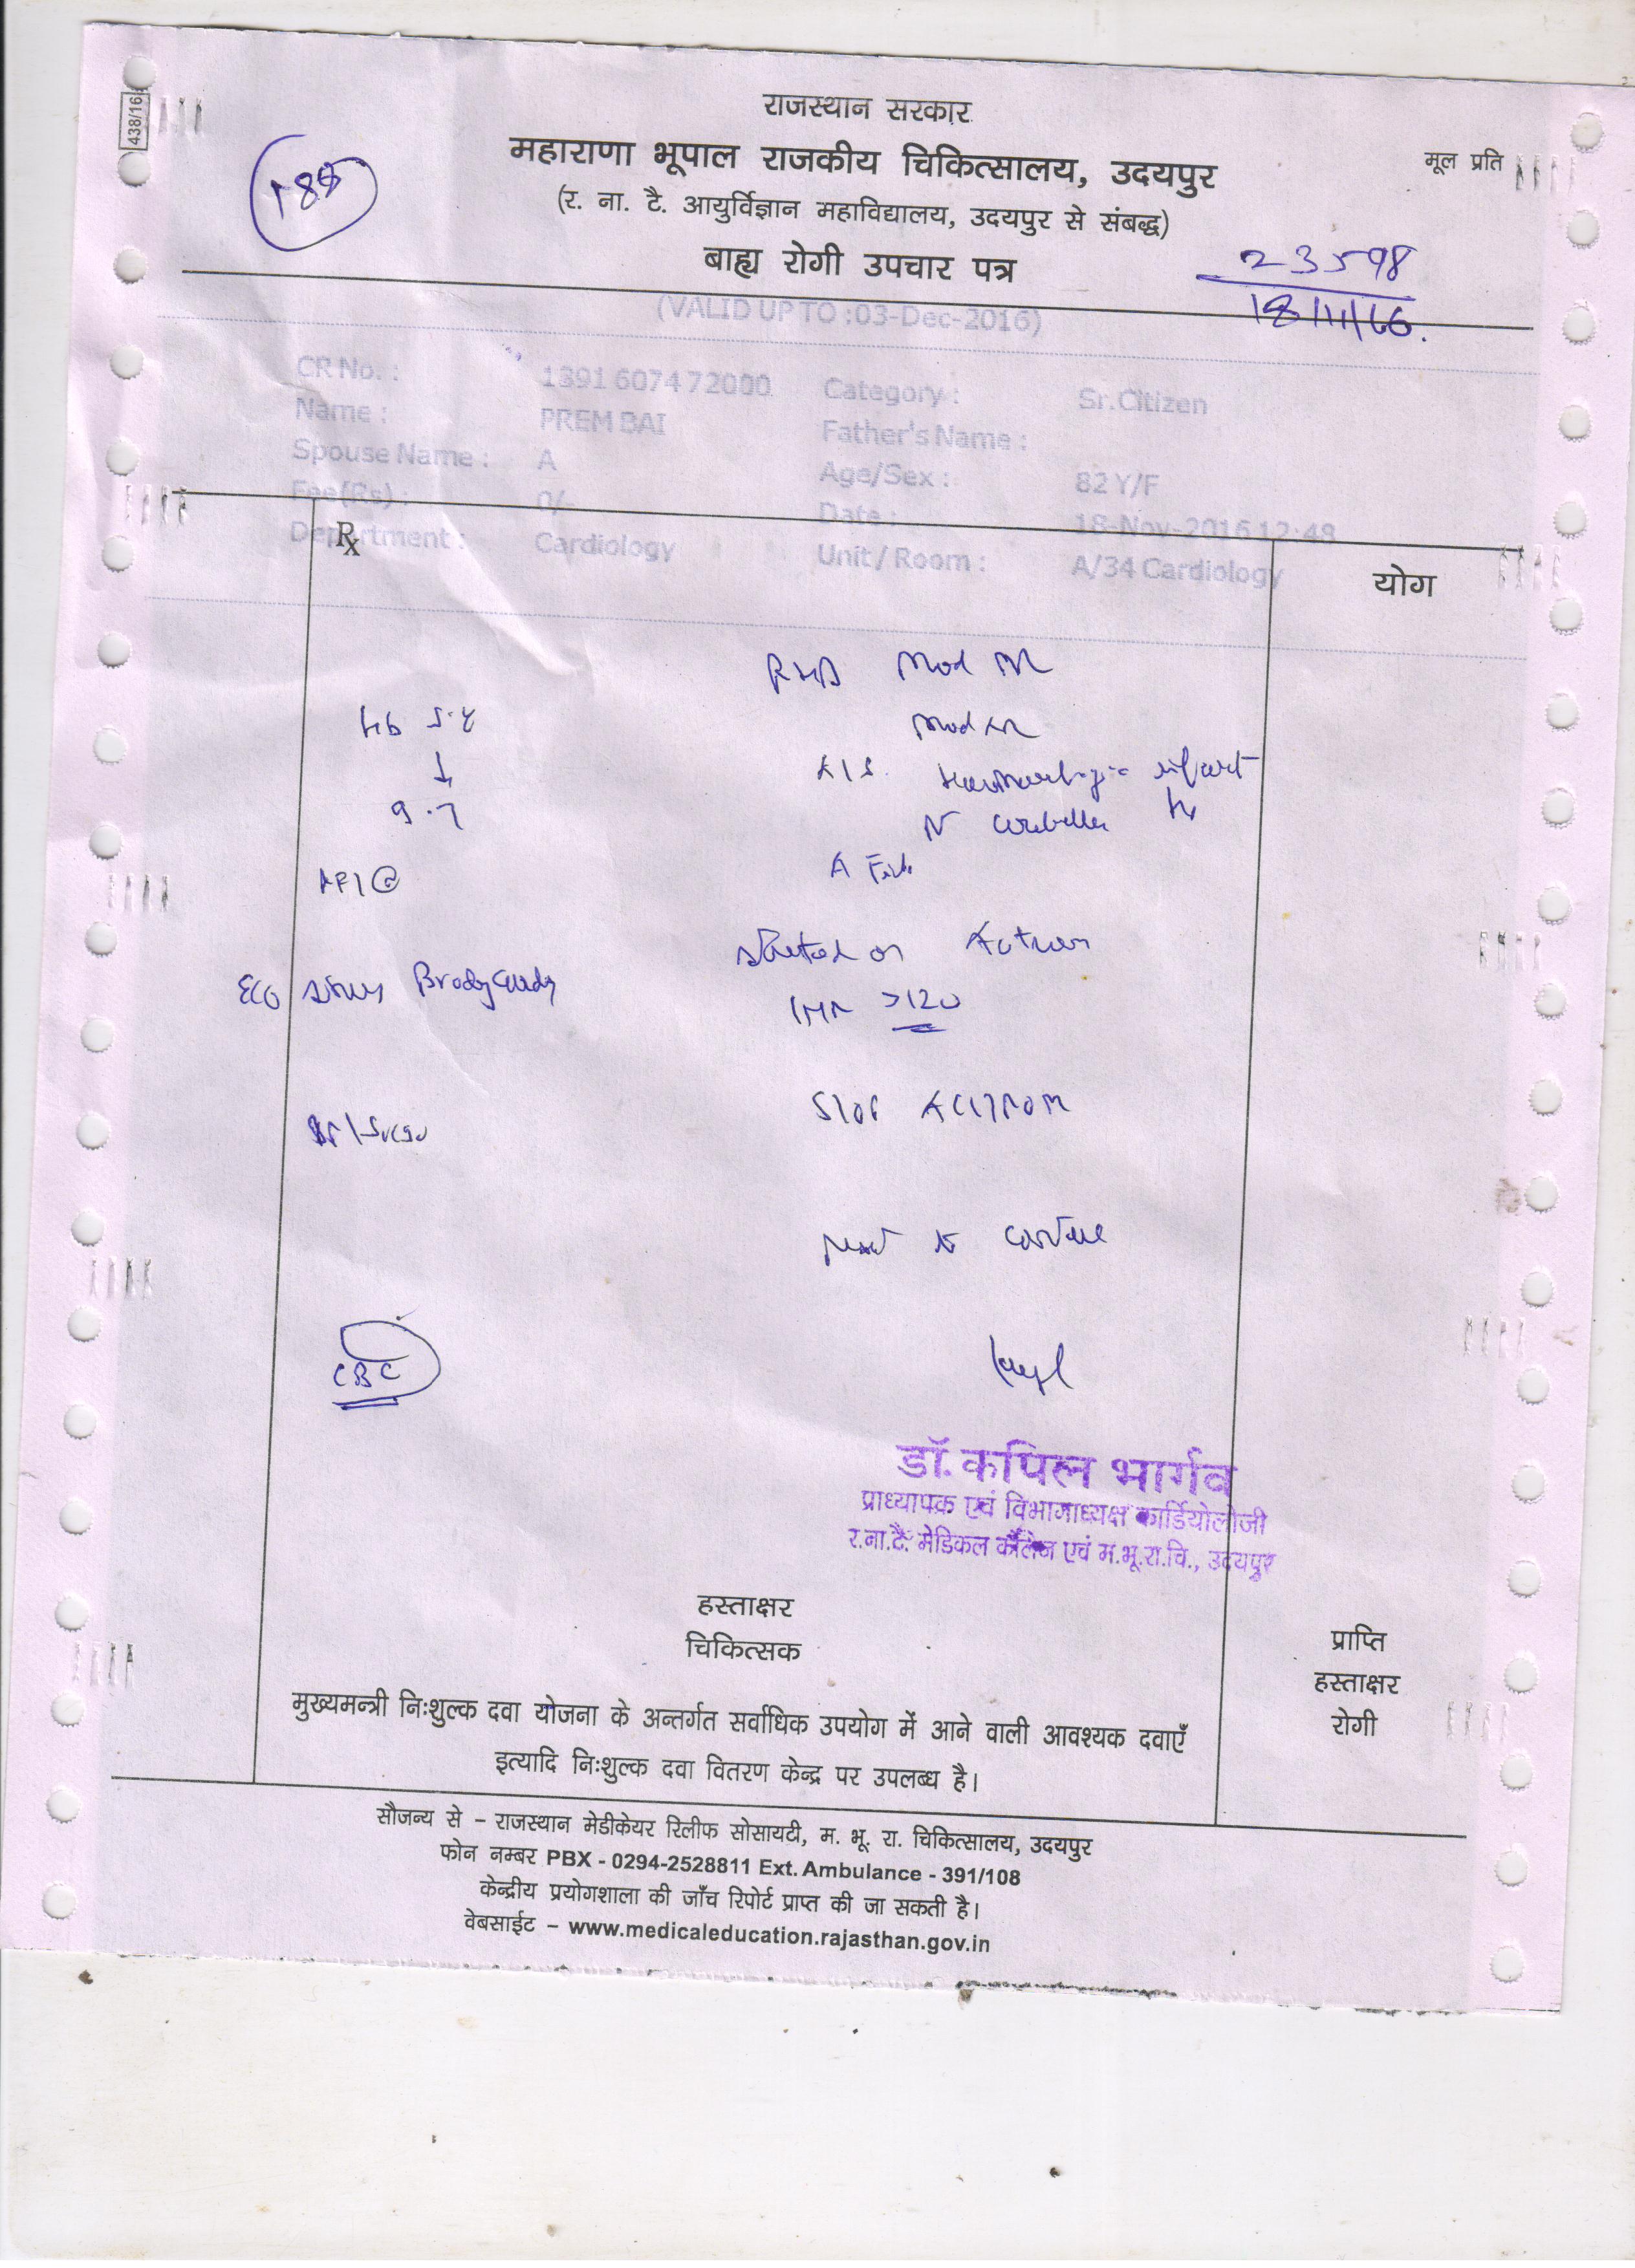 438/16
राजस्थान सरकार
महाराणा भूपाल राजकीय चिकित्सालय, उदयपुर
मूल प्रति
(र. ना. टै. आयुर्विज्ञान महाविद्यालय, उदयपुर से संबद्ध)
बाह्य रोगी उपचार पत्र
23598
18/11/16.
(VALID UP TO :03-Dec-2016)
CR No. : 1391607472000 Category : Sr.Citizen
Name : PREM BAI Father's Name :
Spouse Name : A Age/Sex : 82 Y/F
Fee(Rs) : 0/- Date : 18-Nov-2016 12:48
Department : Cardiology Unit / Room : A/34 Cardiology
Rx
योग
RHD Mod MR
Hb 5.8 Mod AR
↓ infarct
9.7
A Fib
Started on Acitrom
ECG Sinus Bradycardy
INR >120
STOP ACITROM
CBC
डॉ. कपिल भार्गव
प्राध्यापक एवं विभागाध्यक्ष कार्डियोलोजी
र.ना.टै. मेडिकल कॉलेज एवं म.भू.रा.चि., उदयपुर
हस्ताक्षर
चिकित्सक
प्राप्ति
हस्ताक्षर
रोगी
मुख्यमन्त्री निःशुल्क दवा योजना के अन्तर्गत सर्वाधिक उपयोग में आने वाली आवश्यक दवाएँ
इत्यादि निःशुल्क दवा वितरण केन्द्र पर उपलब्ध है।
सौजन्य से – राजस्थान मेडीकेयर रिलीफ सोसायटी, म. भू. रा. चिकित्सालय, उदयपुर
फोन नम्बर PBX - 0294-2528811 Ext. Ambulance - 391/108
केन्द्रीय प्रयोगशाला की जाँच रिपोर्ट प्राप्त की जा सकती है।
वेबसाईट – www.medicaleducation.rajasthan.gov.in